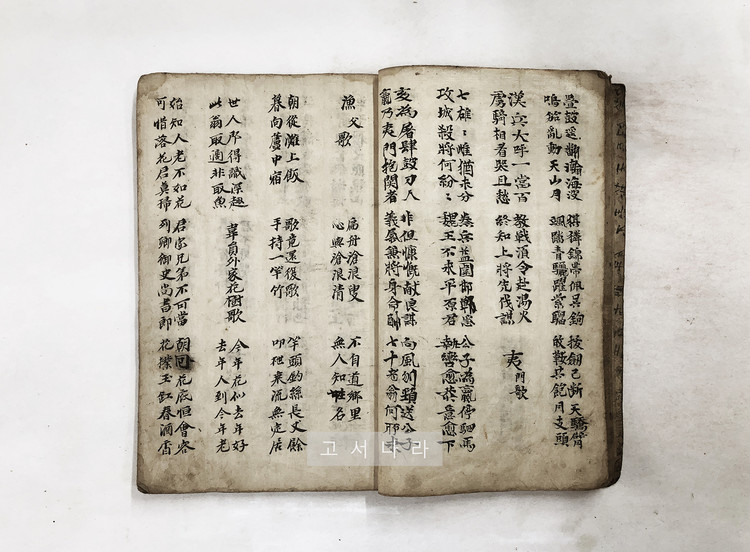 疊鼓遙翻瀚海波
鳴笳亂動天山月
猉獜錦帶佩吳鉤
颯踏青驪躍紫騮
拔劍已斷天驕臂
皈鞍共飲月支頭
漢兵大呼一當百
虜騎相看哭且愁
教戰須令赴湯火
終知上將先伐謀
夷門歌
七雄〻雌猶未分
攻城殺將何紛〻
秦兵益圍邯鄲急
魏王不求平原君
公子為嬴停駟馬
執轡愈恭意愈下
亥為屠肆鼓刀人
嬴乃夷門抱關者
非但慷慨献良謀
義氣兼將身命酬
向風刎頸送公子
七十老翁何所求
漁父歌
扁舟滄浪叟
心與滄浪清
不自道鄉里
無人知姓名
朝從灘上飯
暮向蘆中宿
歌竟還復歌
手持一竿竹
竿頭釣絲長丈餘
叩枻乘流無定居
世人那得識深趣
此翁取適非取魚
韋員外家花樹歌
今年花似去年好
去年人到今年老
始知人老不如花
可惜落花君莫掃
君家兄弟不可當
列卿御史尚書郎
朝回花底恒會客
花撲玉缸春酒香
고서나라